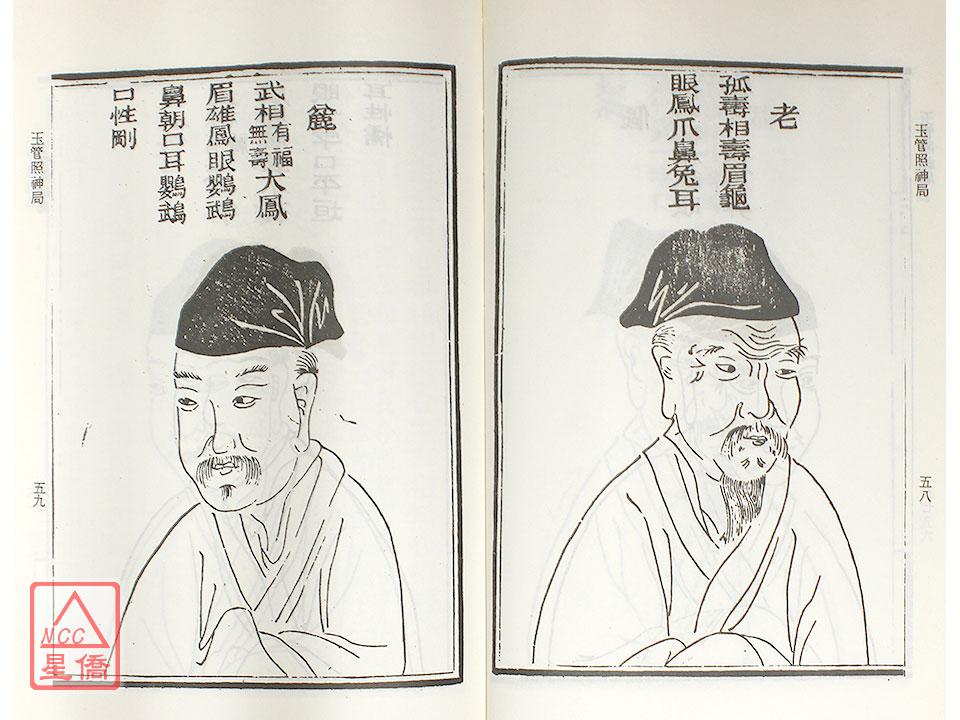 玉管照神局
五八
老
孤壽相壽眉龜
眼鳳爪鼻兔耳
玉管照神局
五九
武相有福無壽大鳳
眉雄鳳眼鸚鵡
鼻朝口耳鸚鵡
口性剛
MCC
星僑